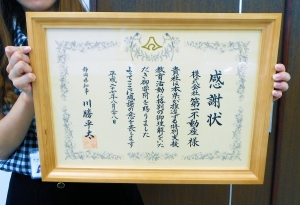 感謝状
株式会社第一不動産様
貴社は本県が推進する特別支援
教育活動に格別の御理解をいた
だき御芳附を賜りました
よってここに感謝の意を表します
平成二十七年八月二十八日
静岡県知事 川勝平太